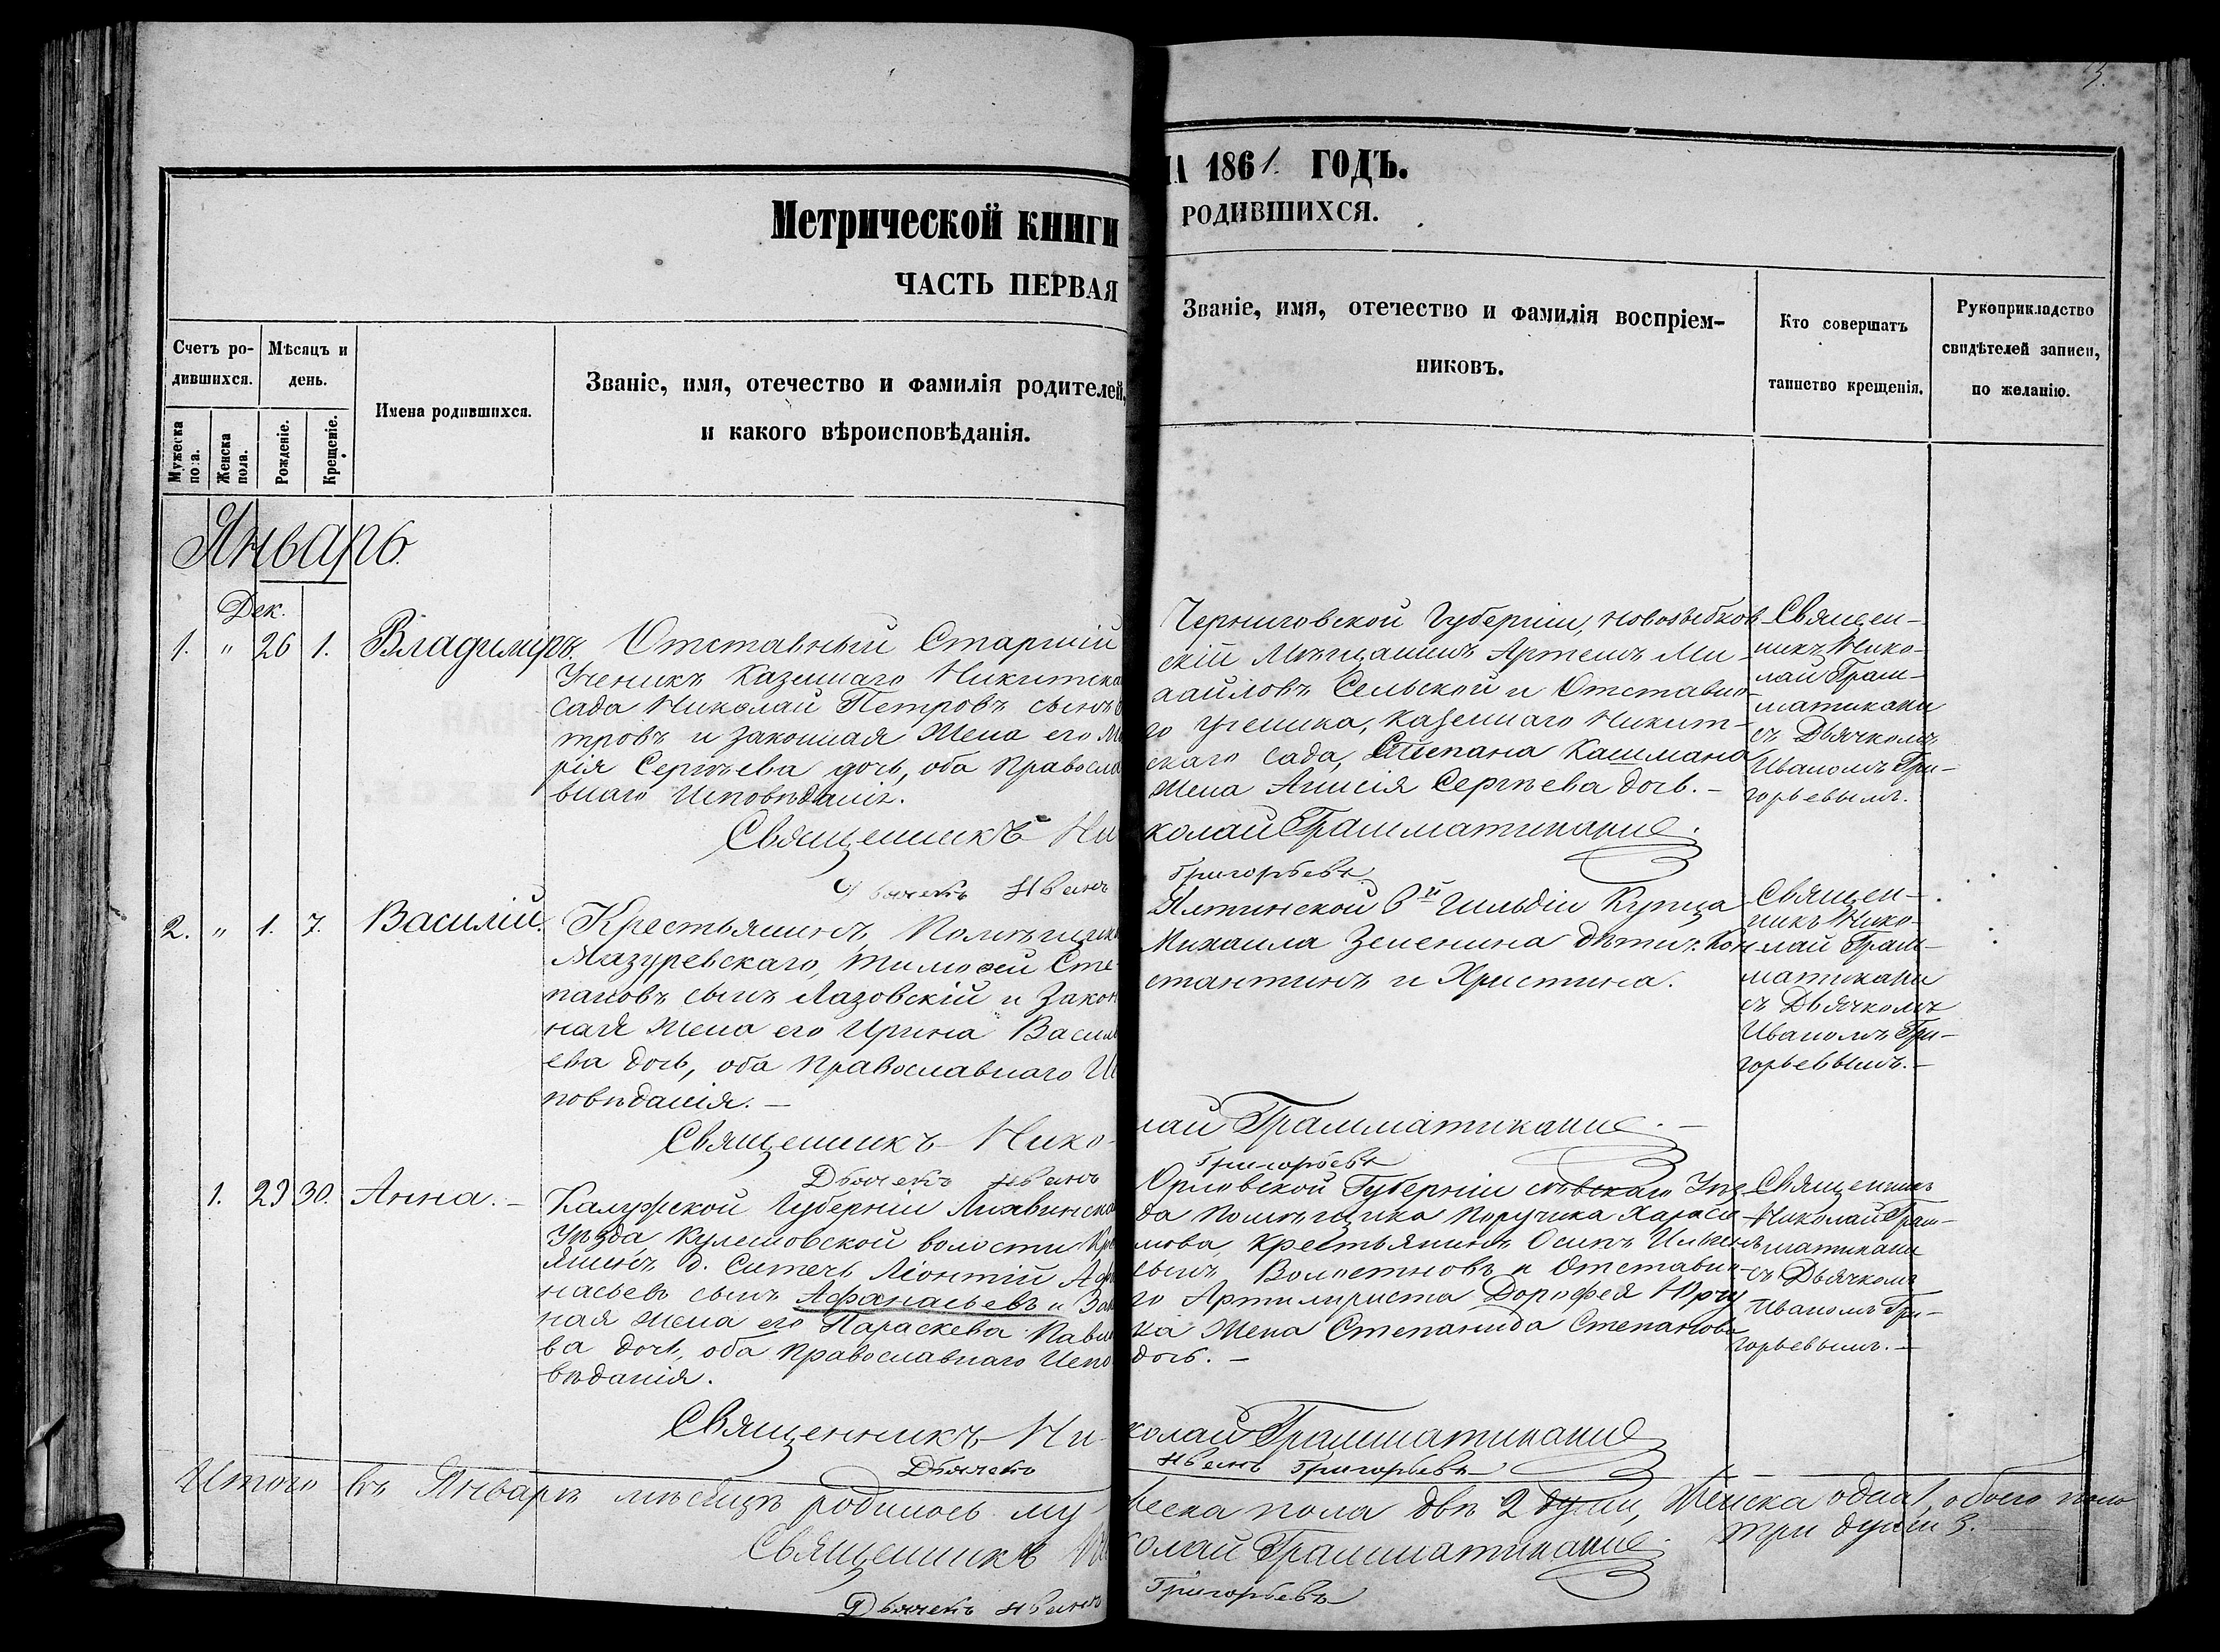 3.
Метрической книги
ЧАСТЬ ПЕРВАЯ
НА 1861. ГОДЪ.
РОДИВШИХСЯ.
Счетъ ро-
дившихся.
Мужеска
пола.
Женска
пола.
Мѣсяцъ и
день.
Рожденіе.
Крещеніе.
Имена родившихся.
Званіе, имя, отечество и фамилія родителей,
и какого вѣроисповѣданія.
Званіе, имя, отечество и фамилія воспріем-
никовъ.
Кто совершатъ
таинство крещенія.
Рукоприкладство
свидѣтелей записи,
по желанію.
Январь
Дек.
1. " 26 1. Владиміръ.
Отставный Старшій
Ученикъ Казеннаго Никитска
сада Николай Петровъ сынъ
тровъ и законная жена его Ма
рія Сергѣева дочь, оба Правосла
внаго Исповѣданія.
Черниговской Губерніи, Новозыбков
скій Мѣщанинъ Артемъ Ми-
хайловъ Сельской и Отставно-
го ученика, Казеннаго Никит-
скаго сада, Степана Кашмана
жена Анисія Сергѣева дочь. -
Священ-
никъ Нико-
лай Грам-
матикати
съ Дьячкомъ
Иваномъ Гри-
горьевымъ.
Священникъ Николай Грамматикати
Дьячекъ Иванъ Григорьевъ
2. " 1. 7. Василій.
Крестьянинъ Помѣщика
Мазуревскаго, Тимофей Сте-
пановъ сынъ Лазовскій и Закон
ная жена его Ирина Василь
ева дочь, оба Православнаго Ис
повѣданія. -
Ялтинской 3й Гильдіи Купца
Михаила Зеленина дѣти: Кон
стантинъ и Христина.
Священ-
никъ Нико-
лай Грам-
матикати
съ Дьячкомъ
Иваномъ Гри-
горьевымъ. -
Священникъ Николай Грамматикати. -
Дьячекъ Иванъ Григорьевъ
1. 29 30. Анна. -
Калужской Губерніи Лихвинска
Уѣзда Кулешовской волости Кре
янинъ д. Ситечь Ліонтій Афа
насьевъ сынъ Афанасьевъ и Зак
ная жена его Параскева Павл
ва дочь, оба Православнаго Испо
вѣданія.
Орловской Губерніи Сѣвскаго Уѣз-
да Помѣщика Поручика
мова, Крестьянинъ Осипъ Ильинъ
сынъ и Отставн-
го Артилириста Дорофея
ка жена Степанида Степанова
дочь. -
Священникъ
Николай Грам-
матикати
съ Дьячкомъ
Иваномъ Гри-
горьевымъ. -
Священникъ Николай Грамматикати
Дьячекъ Иванъ Григорьевъ
Итого въ Январѣ мѣсяцѣ родилось мужеска пола двѣ 2 души, Женска одна 1, обоего пола
три души 3.
Священникъ Николай Грамматикати
Дьячекъ Иванъ Григорьевъ